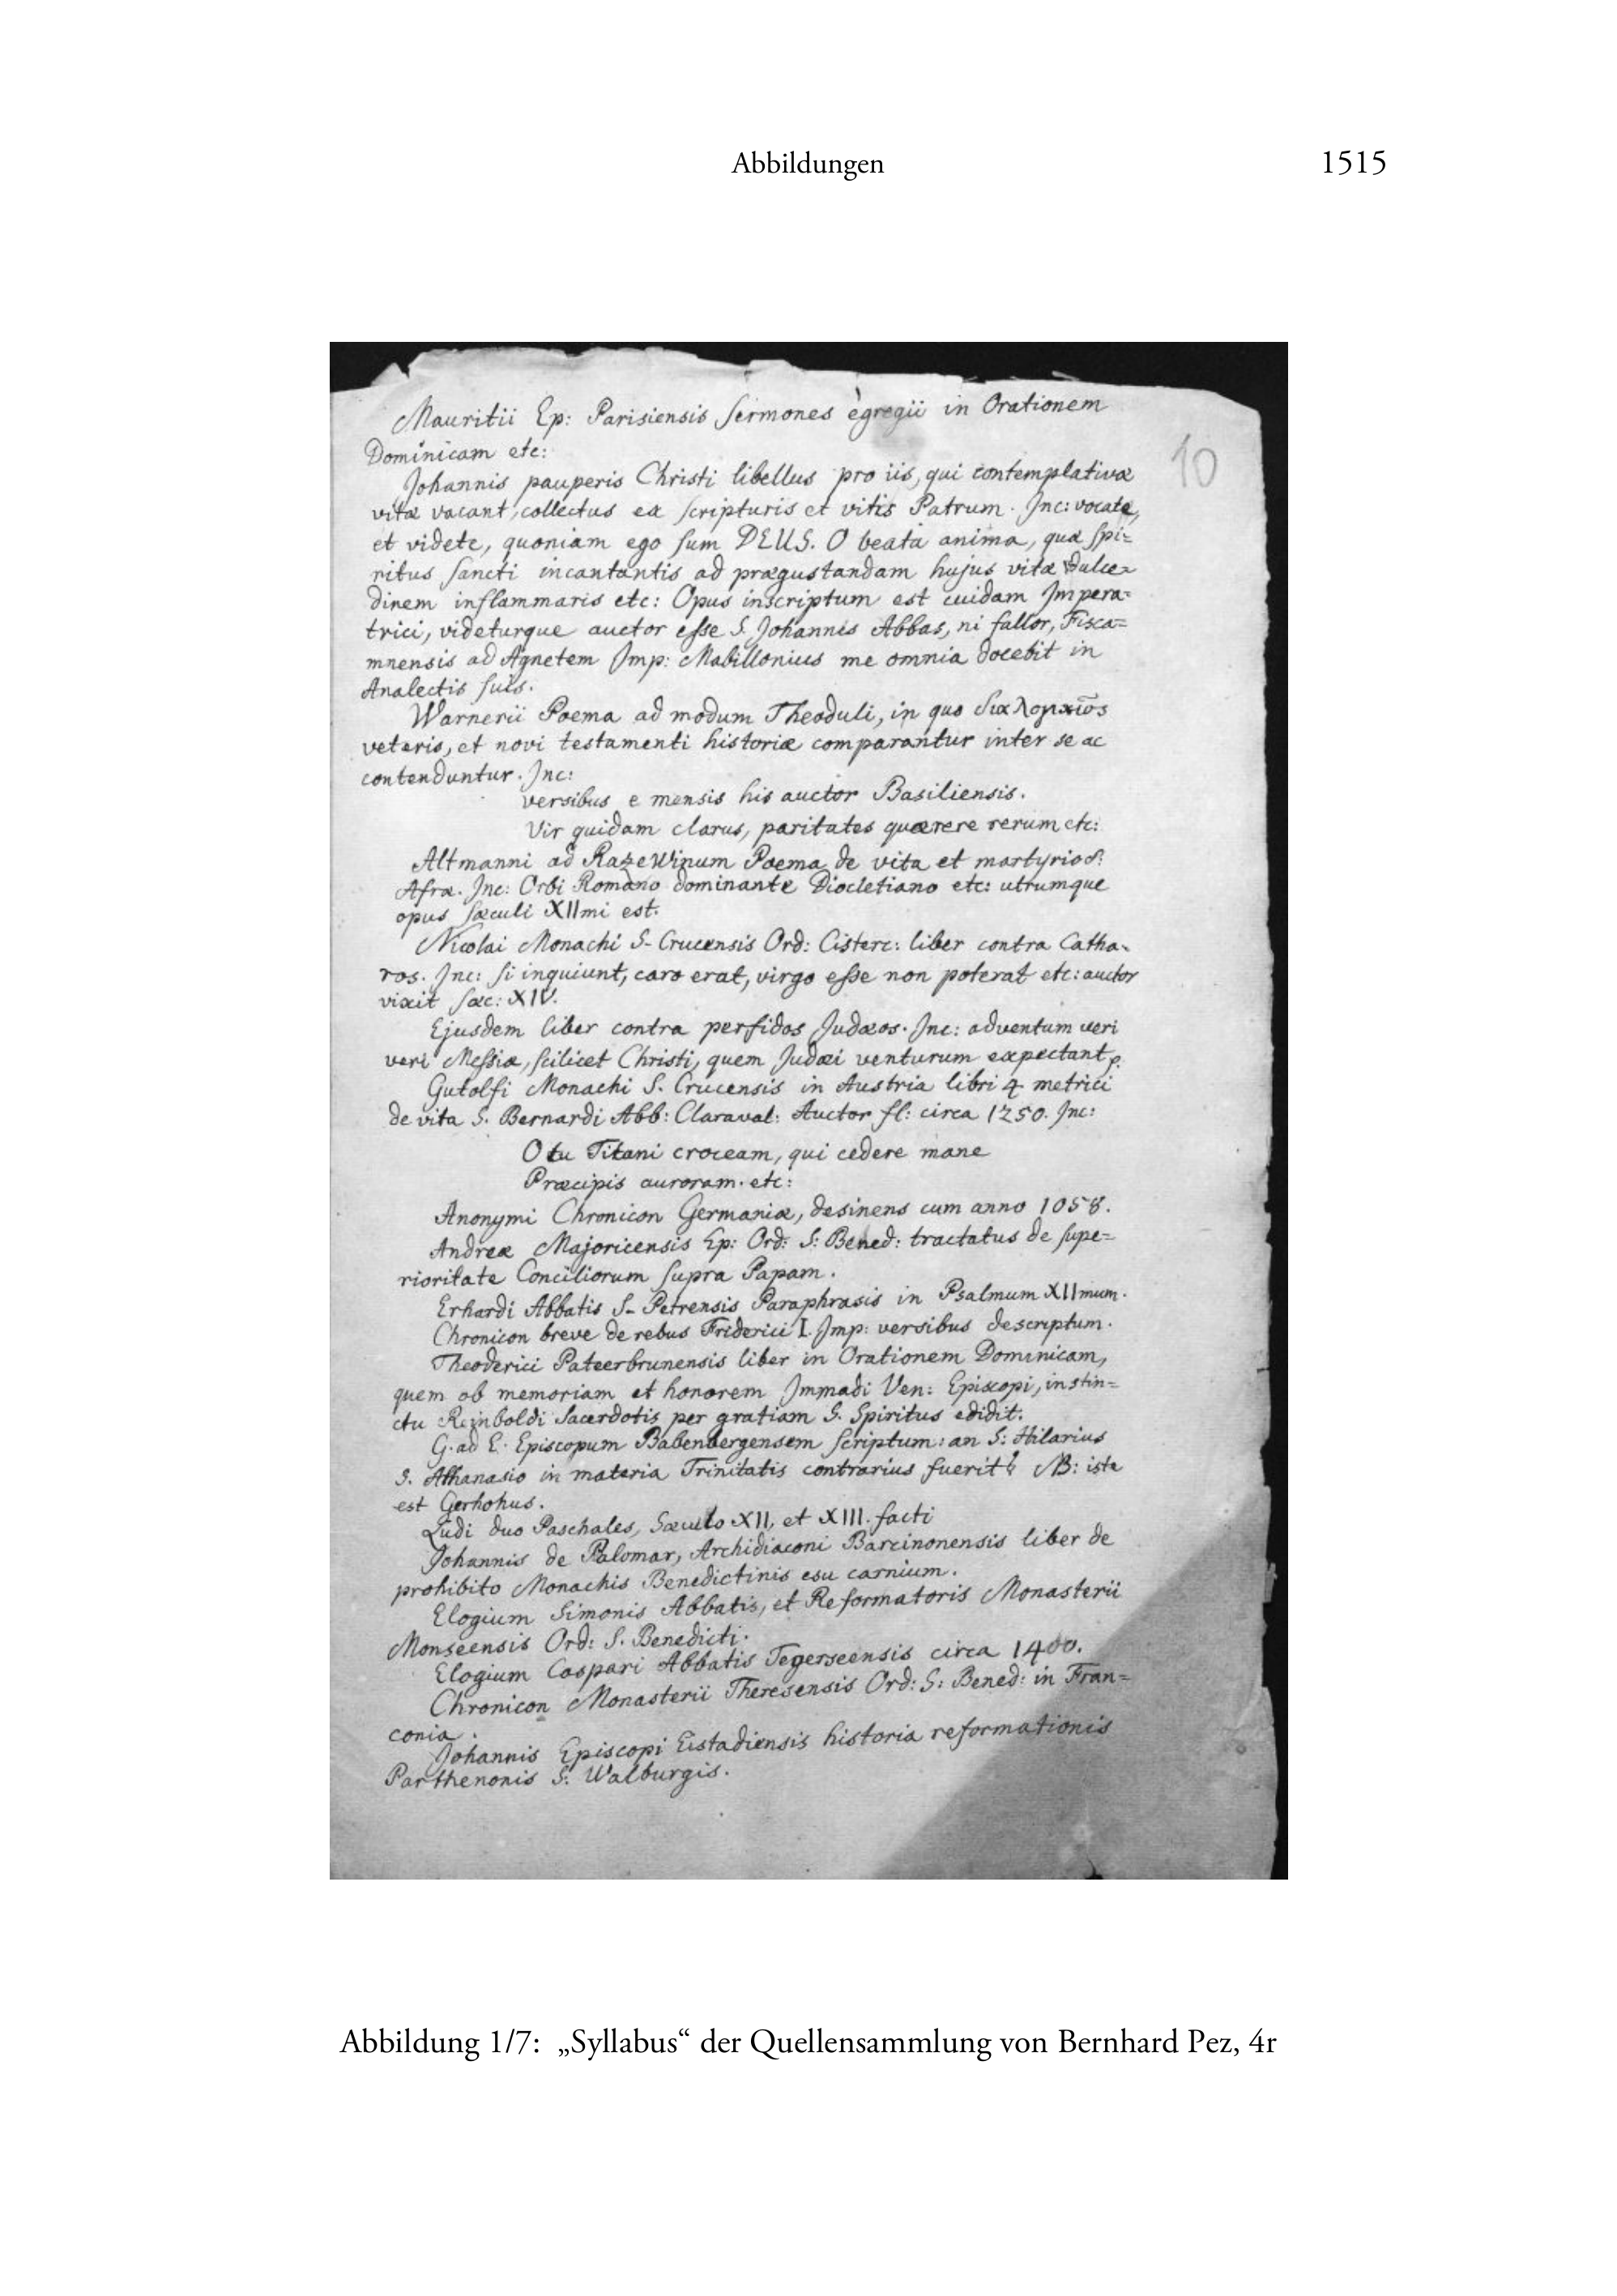 Abbildungen 1515
Mauritii Ep: Parisiensis Sermones egregii in Orationem
Dominicam etc:
10
Johannis pauperis Christi libellus pro iis, qui contemplativæ
vitæ vacant, collectus ex scripturis et vitis Patrum. Inc: vocate,
et videte, quoniam ego sum DEUS. O beata anima, quæ Spi=
ritus Sancti incantantis ad prægustandam hujus vitæ dulce=
dinem inflammaris etc: Opus inscriptum est cuidam Impera=
trici, videturque auctor esse S. Johannes Abbas, ni fallor, Fisca=
mnensis ad Agnetem Imp: Mabillonius me omnia docebit in
Analectis suis.
Warnerii Poema ad modum Theoduli, in quo
veteris, et novi testamenti historiæ comparantur inter se ac
contenduntur. Inc:
versibus e mensis his auctor Basiliensis.
Vir quidam clarus, paritates quærere rerum etc:
Altmanni ad Razewinum Poema de vita et martyrio S:
Afræ. Inc: Orbi Romano dominante Diocletiano etc: utrumque
opus sæculi XIImi est.
Nicolai Monachi S- Crucensis Ord: Cisterc: liber contra Catha=
ros. Inc: Si inquiunt, caro erat, virgo esse non poterat etc: auctor
vixit sæc: XIV.
Ejusdem liber contra perfidos Judæos. Inc: adventum veri
veri Messiæ, scilicet Christi, quem Judæi venturum expectant
Gutolfi Monachi S. Crucensis in Austria libri 4 metrici
de vita S. Bernardi Abb: Claraval: Auctor fl: circa 1250. Inc:
O tu Titani croceam, qui cedere mane
Præcipis auroram. etc:
Anonymi Chronicon Germaniæ, desinens cum anno 1058.
Andreæ Majoricensis Ep: Ord: S: Bened: tractatus de supe=
rioritate Conciliorum supra Papam.
Erhardi Abbatis S- Petrensis Paraphrasis in Psalmum XIImum.
Chronicon breve de rebus Friderici I. Imp: versibus descriptum.
Theoderici Pateerbrunensis liber in Orationem Dominicam,
quem ob memoriam et honorem Immadi Ven: Episcopi, instin=
ctu Reinboldi Sacerdotis per gratiam S. Spiritus edidit.
G. ad E. Episcopum Babenbergensem scriptum: an S: Hilarius
S. Athanasio in materia Trinitatis contrarius fuerit? NB: iste
est Gerhohus.
Ludi duo Paschales, Sæculo XII, et XIII. facti
Johannis de Palomar, Archidiaconi Barcinonensis liber de
prohibito Monachis Benedictinis esu carnium.
Elogium Simonis Abbatis, et Reformatoris Monasterii
Monseensis Ord: S. Benedicti.
Elogium Caspari Abbatis Tegerseensis circa 1400.
Chronicon Monasterii Theresensis Ord: S: Bened: in Fran=
conia.
Johannis Episcopi Eistadiensis historia reformationis
Parthenonis S. Walburgis.
Abbildung 1/7: „Syllabus“ der Quellensammlung von Bernhard Pez, 4r